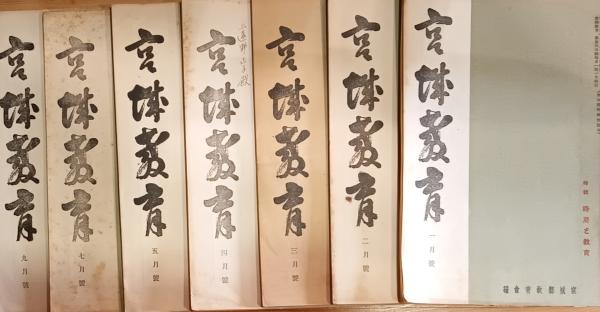 宮城教育
一月號
特輯 時局と教育
宮城縣教育會編
宮城教育
二月號
宮城教育
三月號
宮城教育
四月號
宮城教育
五月號
宮城教育
七月號
宮城教育
九月號